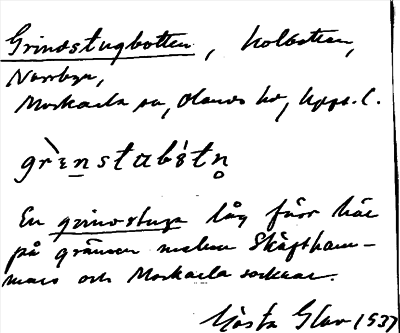 Grindstugbotten, kolbotten,
Norrbyn,
Morkarla sn, Olands hd, Upps. l.
grὲn̲stɯbótn̥
En grindstuga låg förr här
på gränsen mellan Skäftham-
mars och Morkarla socknar.
Gösta Glav 1937